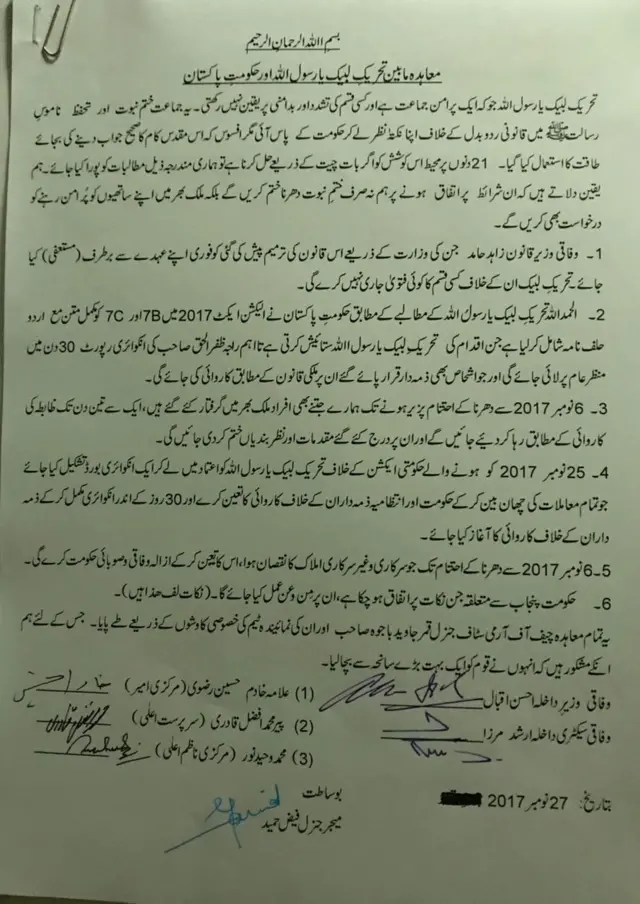 بسم اﷲ الرحمان الرحیم
معاہدہ مابین تحریک لبیک یارسول اﷲ اور حکومت پاکستان
تحریک لبیک یارسول اﷲ جو کہ ایک پر امن جماعت ہے اور کسی قسم کی تشدد اور بدامنی پر یقین نہیں رکھتی۔ یہ جماعت ختم نبوت اور تحفظ ناموسِ
رسالت ﷺ میں قانونی ردوبدل کے خلاف اپنا نکتۂ نظر لے کر حکومت کے پاس آئی مگر افسوس کہ اس مقدس کام کا صحیح جواب دینے کی بجائے
طاقت کا استعمال کیا گیا۔ 21 دنوں پر محیط اس کوشش کو اگر بات چیت کے ذریعے حل کرنا ہے تو ہماری مندرجہ ذیل مطالبات کو پورا کیا جائے۔ ہم
یقین دلاتے ہیں کہ ان شرائط پر اتفاق ہونے پر ہم نہ صرف ختمِ نبوت دھرنا ختم کریں گے بلکہ ملک بھر میں اپنے ساتھیوں کو پُر امن رہنے کو
درخواست بھی کریں گے۔
1۔ وفاقی وزیر قانون زاہد حامد جن کی وزارت کے ذریعے اس قانون کی ترمیم پیش کی گئی کو فوری اپنے عہدے سے برطرف (مستعفی) کیا
جائے۔ تحریک لبیک ان کے خلاف کسی قسم کا کوئی فتویٰ جاری نہیں کرے گی۔
2۔ الحمداﷲ تحریک لبیک یارسول اﷲ کے مطالبے کے مطابق حکومت پاکستان نے الیکشن ایکٹ 2017 میں 7B اور 7C کو مکمل متن مع اردو
حلف نامہ شامل کر لیا ہے جن اقدام کی تحریک لبیک یارسول اﷲ ستائیش کرتی ہے تا اہم راجہ ظفر الحق صاحب کی انکوائری رپورٹ 30 دن میں
منظر عام پر لائی جائے گی اور جو اشخاص بھی ذمہ دار قرار پائے گئے ان پر ملکی قانون کے مطابق کاروائی کی جائے گی۔
3۔ 6 نومبر 2017 سے دھرنا کے اختتام پزیر ہونے تک ہمارے جتنے بھی افراد ملک بھر میں گرفتار کئے گئے ہیں، ایک سے تین دن تک ضابطہ کی
کاروائی کے مطابق رہا کر دیئے جائیں گے اور ان پر درج کئے گئے مقدمات اور نظر بندیاں ختم کر دی جائیں گی۔
4۔ 25 نومبر 2017 کو ہونے والے حکومتی ایکشن کے خلاف تحریک لبیک یارسول اﷲ کو اعتماد میں لے کر ایک انکوائری بورڈ تشکیل کیا جائے
جو تمام معاملات کی چھان بین کر کے حکومت اور انتظامیہ ذمہ داران کے خلاف کاروائی کا تعین کرے اور 30 روز کے اندر انکوائری مکمل کر کے ذمہ
داران کے خلاف کاروائی کا آغاز کیا جائے۔
5۔ 6 نومبر 2017 سے دھرنا کے اختتام تک جو سرکاری و غیر سرکاری املاک کا نقصان ہوا، اس کا تعین کر کے ازالہ وفاقی و صوبائی حکومت کرے گی۔
6۔ حکومت پنجاب سے متعلقہ جن نکات پر اتفاق ہو چکا ہے، ان پر من و عن عمل کیا جائے گا۔ (نکات لف ھذا ہیں)۔
یہ تمام معاہدہ چیف آف آرمی سٹاف جنرل قمر جاوید باجوہ صاحب اور ان کی نمائیندہ ٹیم کی خصوصی کاوشوں کے ذریعے طے پایا۔ جس کے لئے ہم
انکے مشکور ہیں کہ انہوں نے قوم کو ایک بہت بڑے سانحہ سے بچا لیا۔
وفاقی وزیر داخلہ احسن اقبال
(1) علامہ خادم حسین رضوی (مرکزی امیر)
وفاقی سیکٹری داخلہ ارشد مرزا
(2) پیر محمد افضل قادری (سرپرست اعلی)
(3) محمد وحید نور (مرکزی ناظم اعلی)
بتاریخ: 27 نومبر 2017
بوساطت
میجر جنرل فیض حمید